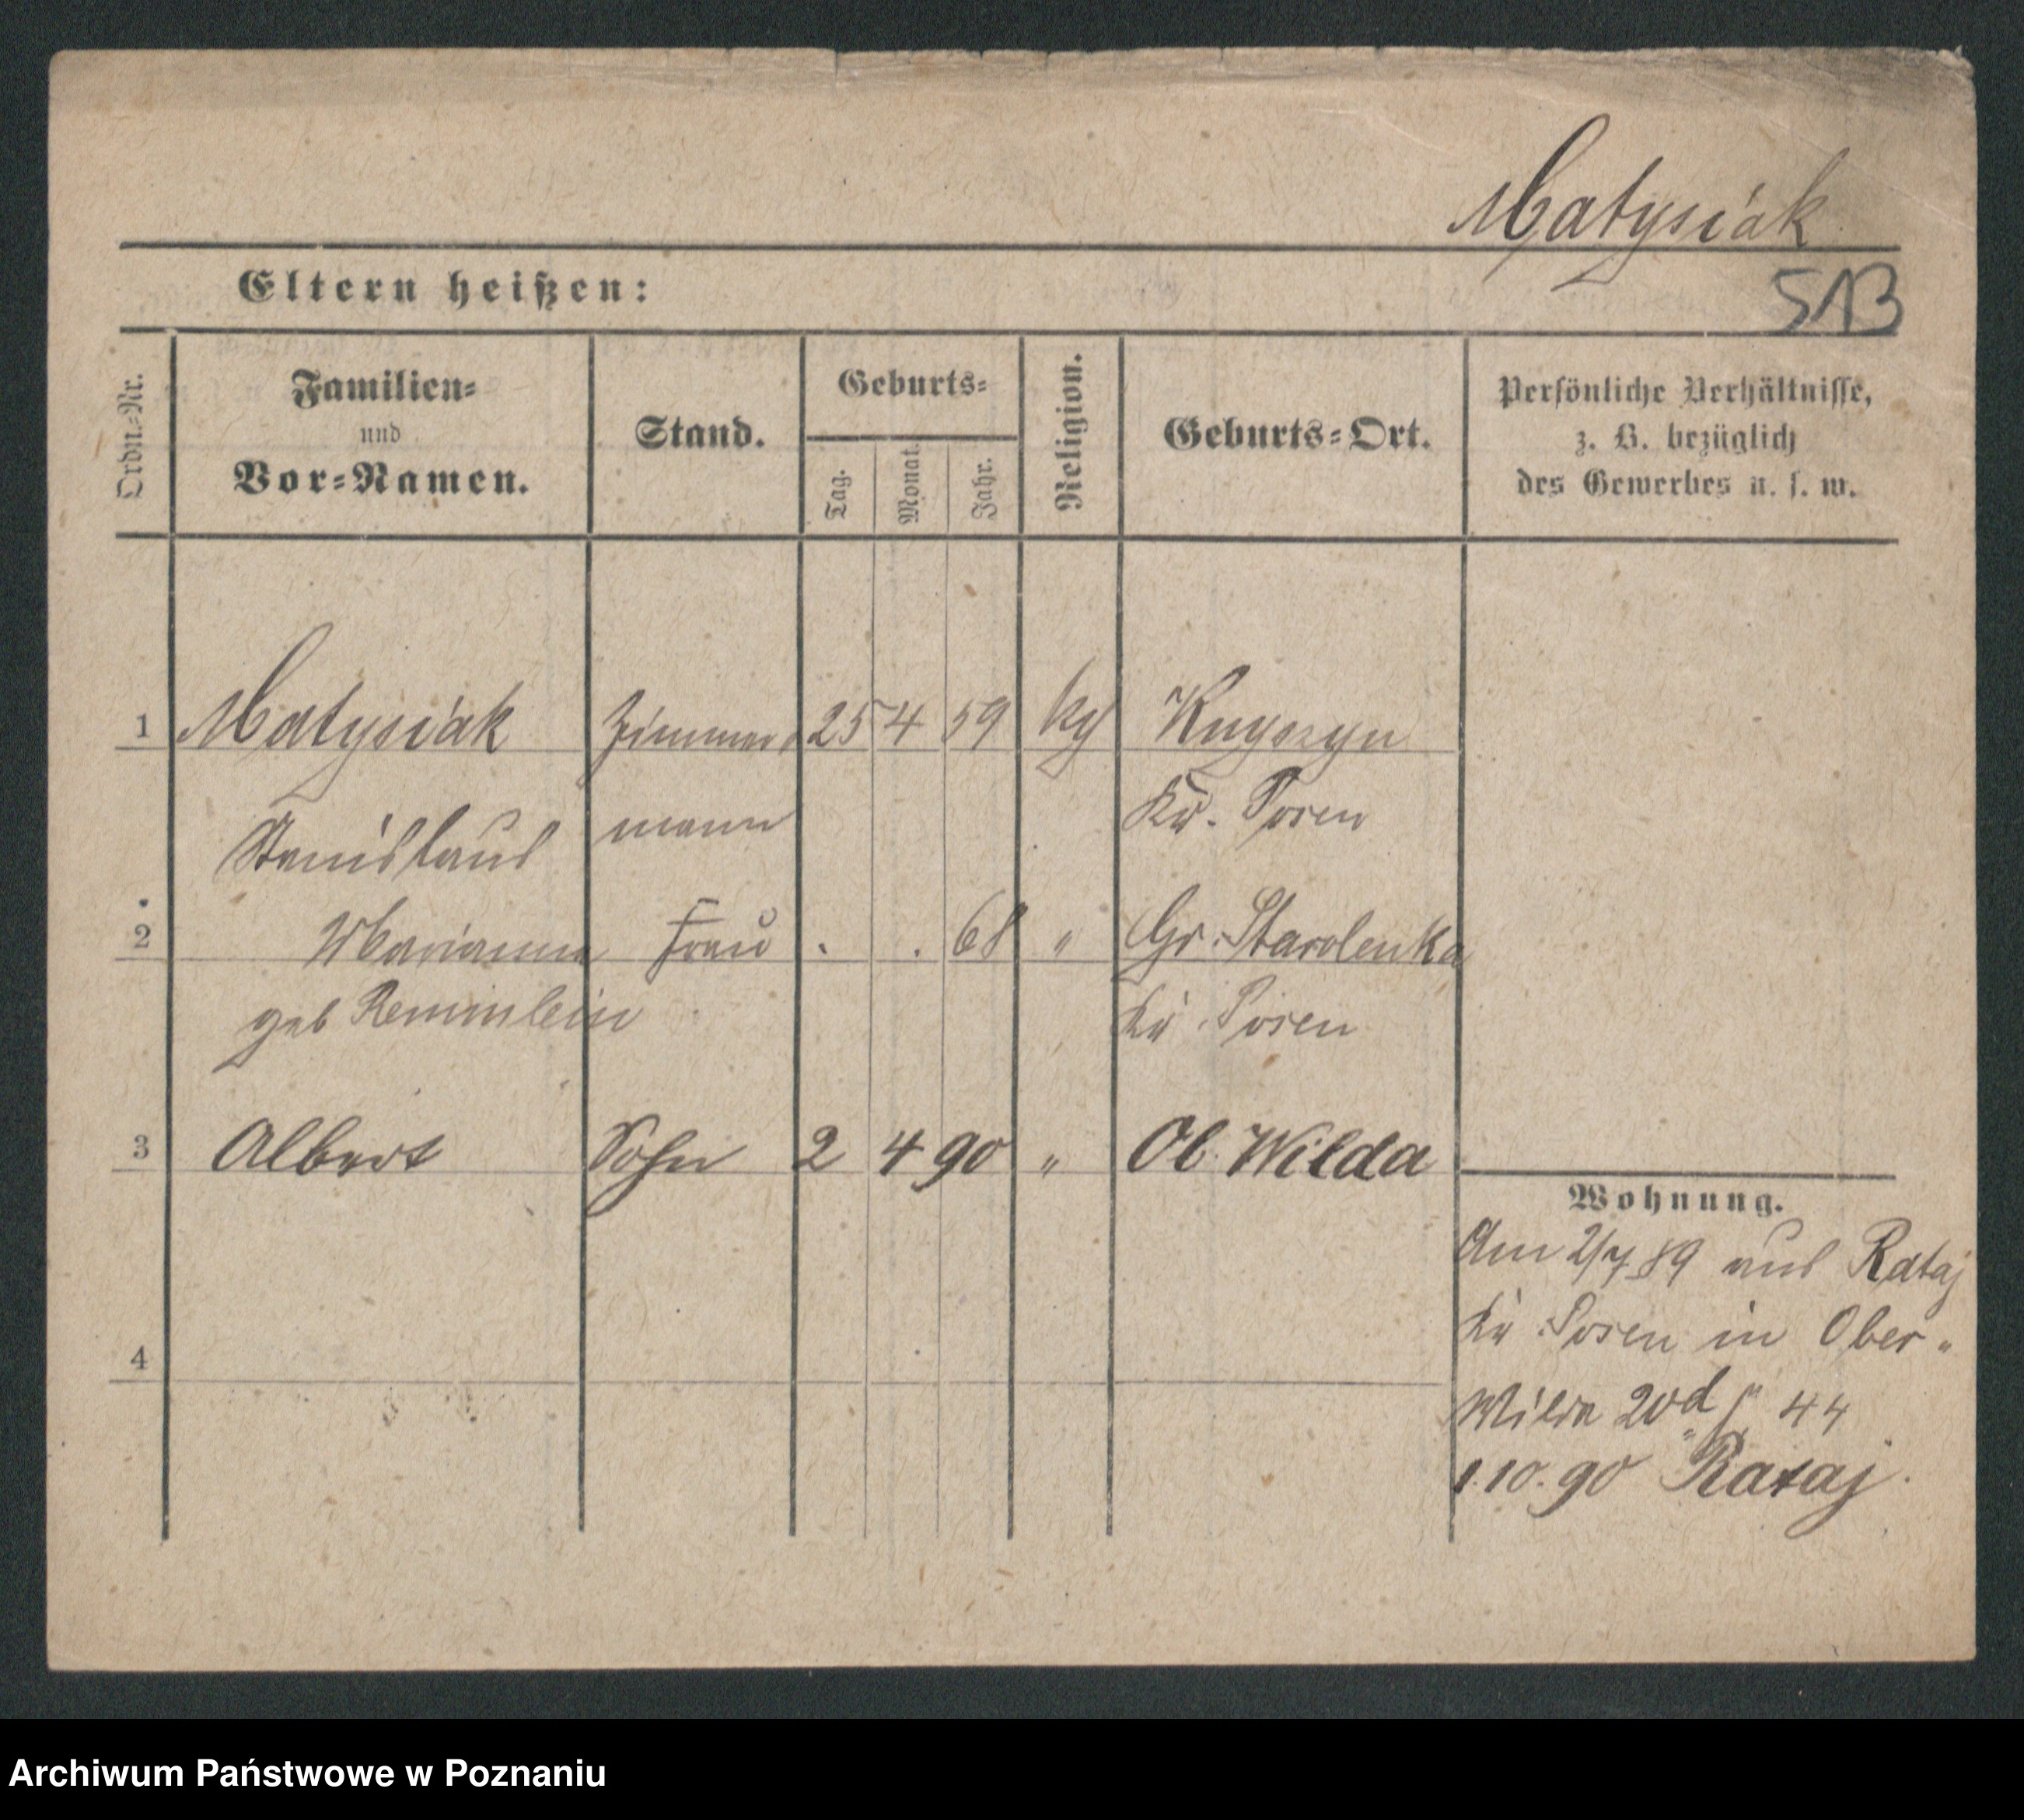 Matysiak
513
Eltern heißen:
Ordn.-Nr.
Familien-
und
Vor-Namen.
Stand.
Geburts-
Tag.
Monat.
Jahr.
Religion.
Geburts-Ort.
Persönliche Verhältnisse,
z. B. bezüglich
des Gewerbes u. s. w.
1 Matysiak Zimmer 25 4 59 Knyszyn
Stanislaus mann Kr. Posen
2 Marianna Frau . . 68 " Gr. Starolenka
geb Remmlein Kr. Posen
3 Albert Sohn 2 4 90 " Ob. Wilda
4
Wohnung.
Am 2/7 89 aus Rataj
Kr. Posen in Ober-
Wilda 44
1.10.90 Rataj.
Archiwum Państwowe w Poznaniu